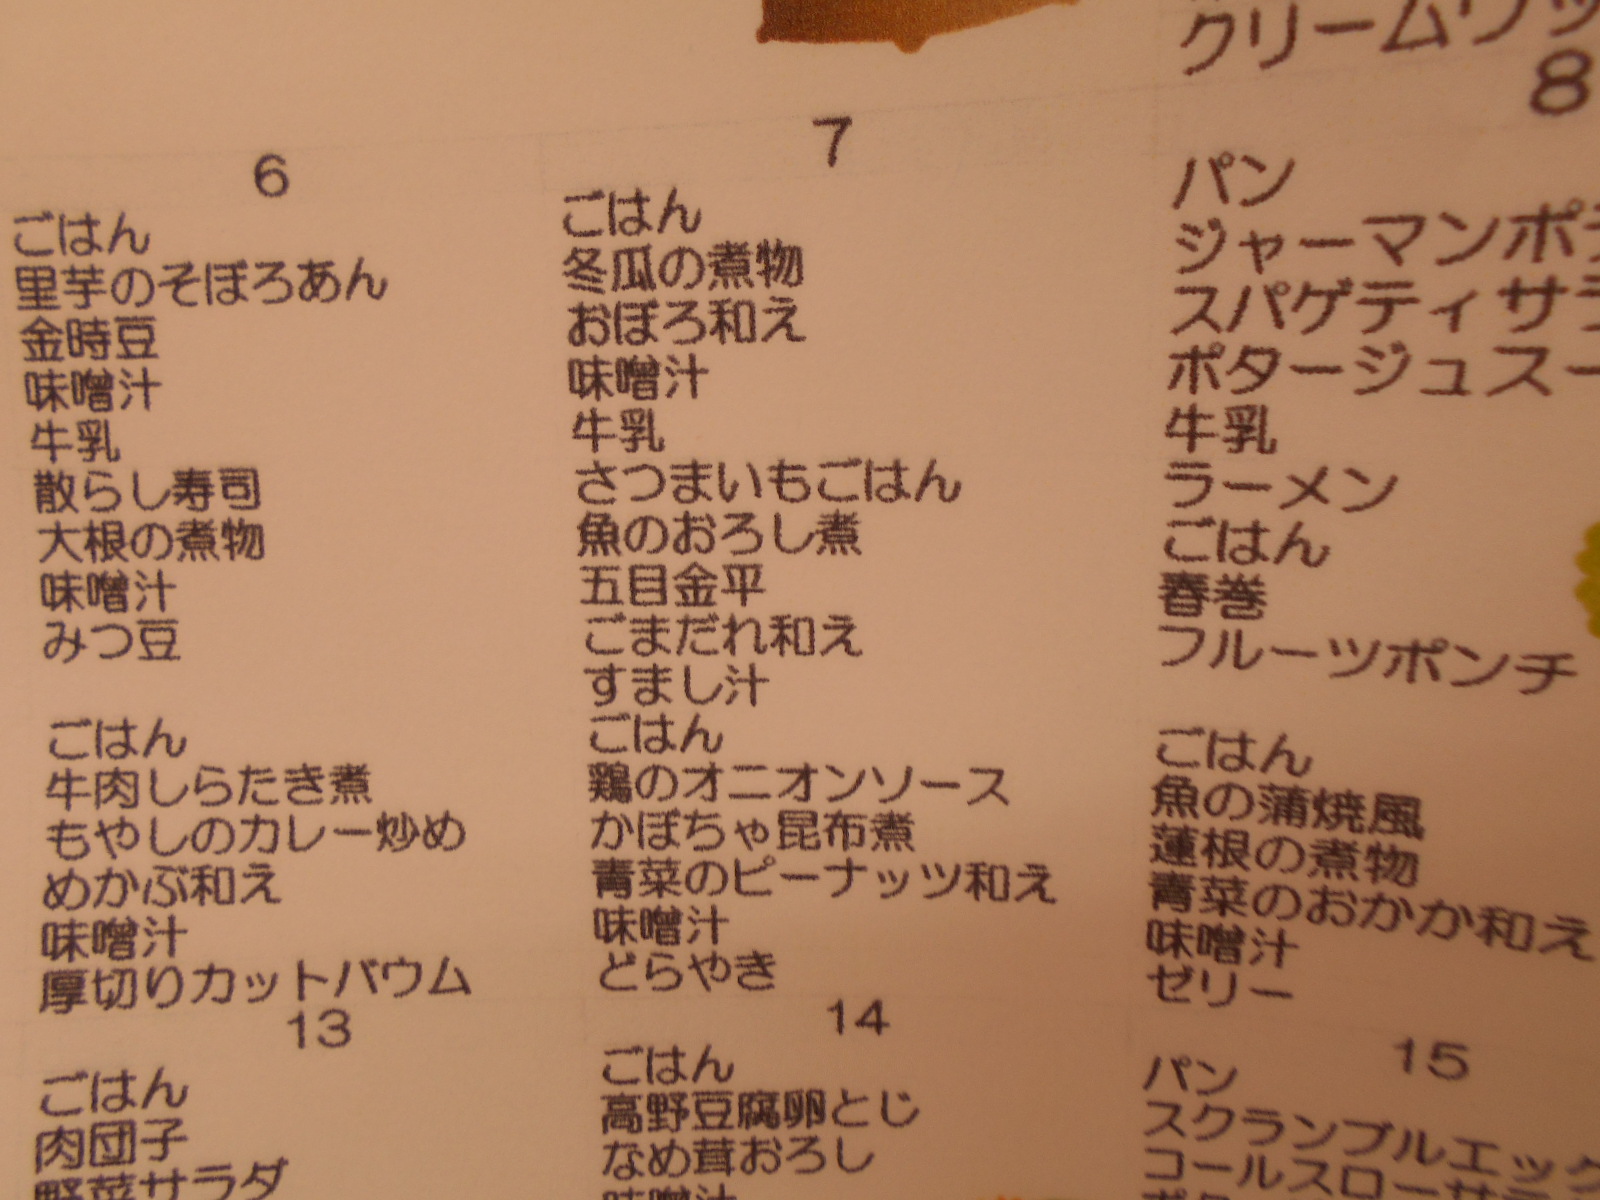 クリームワッ
6
ごはん
里芋のそぼろあん
金時豆
味噌汁
牛乳
散らし寿司
大根の煮物
味噌汁
みつ豆
ごはん
牛肉しらたき煮
もやしのカレー炒め
めかぶ和え
味噌汁
厚切りカットバウム
7
ごはん
冬瓜の煮物
おぼろ和え
味噌汁
牛乳
さつまいもごはん
魚のおろし煮
五目金平
ごまだれ和え
すまし汁
ごはん
鶏のオニオンソース
かぼちゃ昆布煮
青菜のピーナッツ和え
味噌汁
どらやき
8
パン
ジャーマンポテ
スパゲティサラ
ポタージュスー
牛乳
ラーメン
ごはん
春巻
フルーツポンチ
ごはん
魚の蒲焼風
蓮根の煮物
青菜のおかか和え
味噌汁
ゼリー
13
ごはん
肉団子
野菜サラダ
14
ごはん
高野豆腐卵とじ
なめ茸おろし
味噌汁
15
パン
スクランブルエッグ
コールスローサ